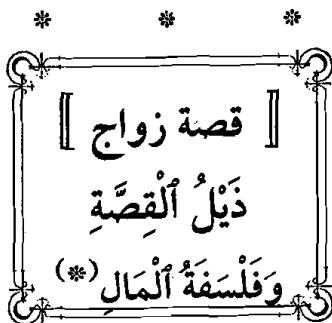 * * *
〚 قصة زواج 〛
ذَيْلُ ٱلْقِصَّةِ
وَفَلْسَفَةُ ٱلْمَالِ (*)